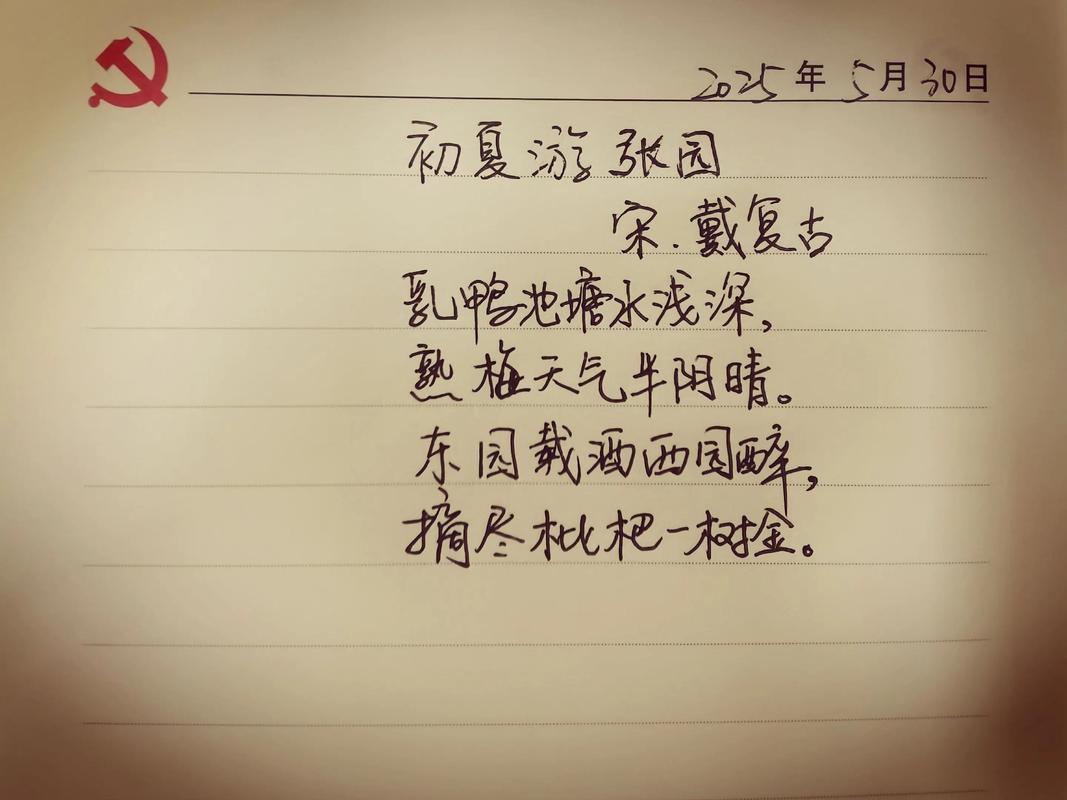 2025年5月30日
初夏游张园
宋.戴复古
乳鸭池塘水浅深,
熟梅天气半阴晴。
东园载酒西园醉,
摘尽枇杷一树金。